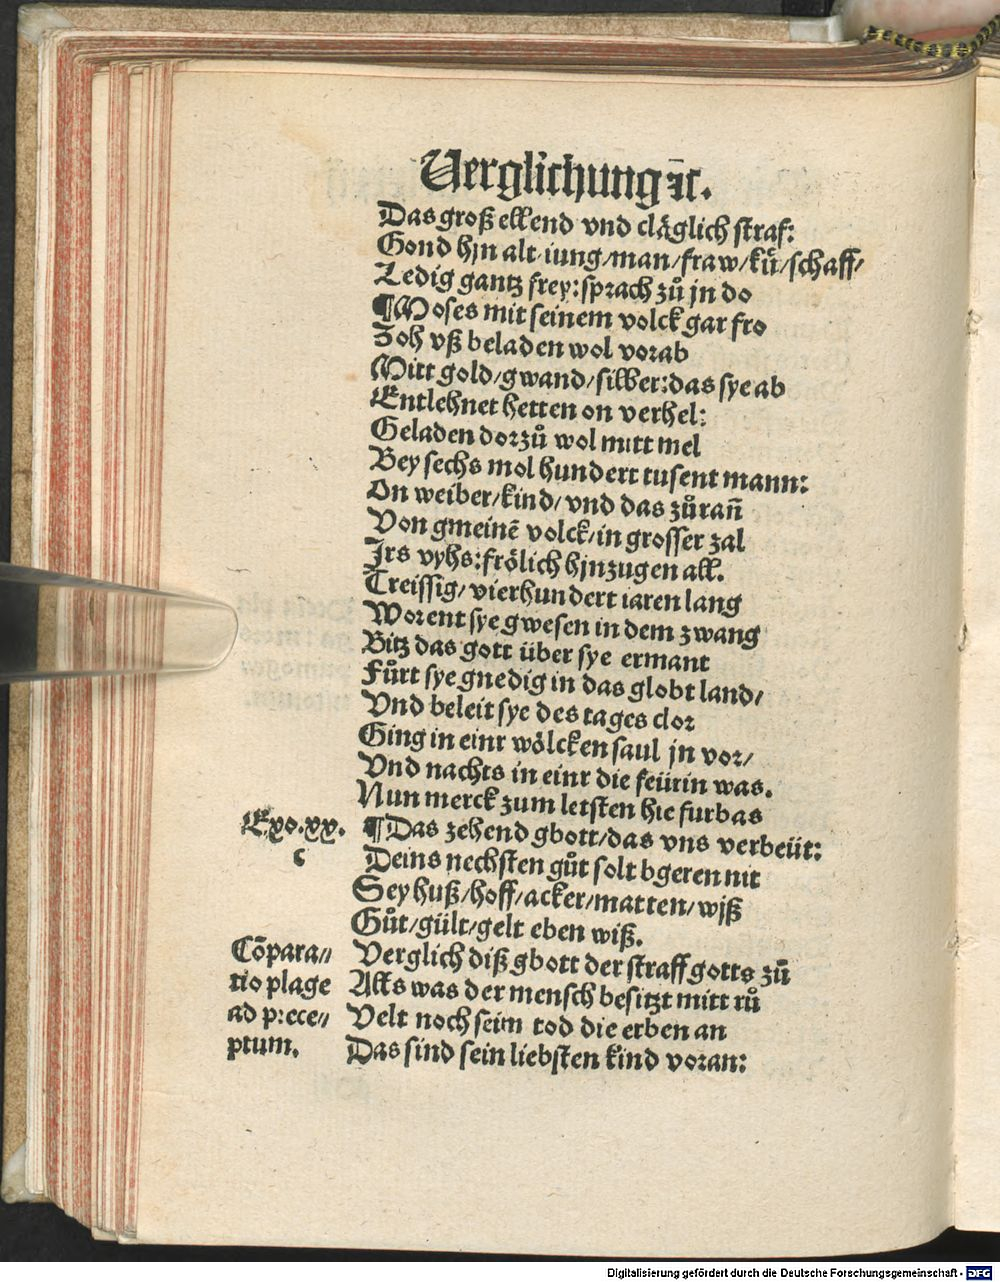 Verglichung ꝛc.
Das groß ellend vnd claͤglich straf:
Gond hjn alt iung/man/fraw/kuͤ/schaff/
Ledig gantz frey:sprach zuͦ jn do
¶Moses mit seinem volck gar fro
Zoh vß beladen wol vorab
Mitt gold/gwand/silber:das sye ab
Entlehnet hetten on verhel:
Geladen dorzuͦ wol mitt mel
Bey sechs mol hundert tusent mann:
On weiber/kind/vnd das zuͦran̄
Von gmeinē volck/in grosser zal
Jrs vyhs:froͤlich hjnzugen all.
Treissig/vierhundert iaren lang
Worent sye gwesen in dem zwang
Bitz das gott über sye ermant
Fuͦrt sye gnedig in das globt land/
Vnd beleit sye des tages clor
Ging in einr woͤlcken saul jn vor/
Vnd nachts in einr die feürin was.
Nun merck zum letsten hie furbas
Exo.xx.
c
¶Das zehend gbott/das vns verbeüt:
Deins nechsten guͦt solt bgeren nit
Sey huß/hoff/acker/matten/wjß
Guͦt/gült/gelt eben wiß.
Cōpara//
tio plage
ad prece//
ptum.
Verglich diß gbott der straff gotts zuͦ
Alls was der mensch besitzt mitt ruͦ
Velt noch seim tod die erben an
Das sind sein liebsten kind voran:
Digitalisierung gefördert durch die Deutsche Forschungsgemeinschaft - DFG